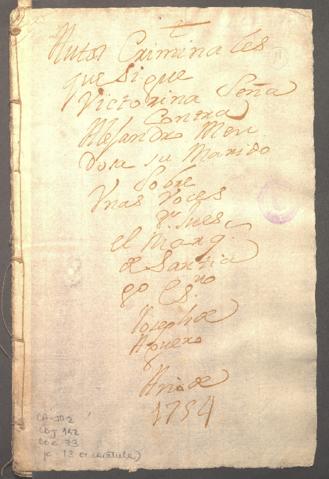 Autos Criminales
que Sigue
Victorina Seña
Contra
Alejandro Men
doza su Marido
Sobre
Unas Voces
Jues,
el Marq.
de Santia
go Es.no
Joseph de
Aguero
Año de
1754
CA-JO 2
162
73
p. 13 (+ carátula)